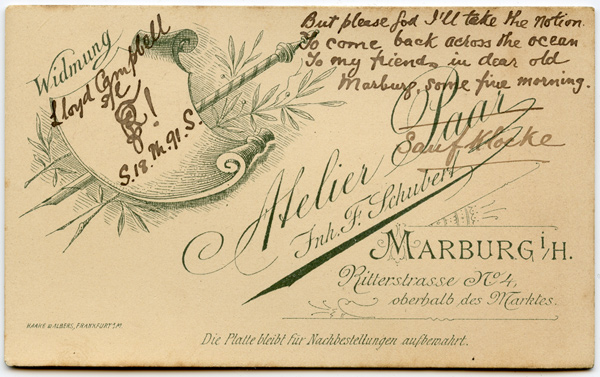 Widmung
Lloyd Campbell
S. 18. Th. 91. S.
But please God I'll take the notion
To come back across the ocean
To my friends in dear old
Marburg, some fine morning.
Sauf Klocke
Atelier Saar
Inh. F. Schubert
MARBURG i/H.
Ritterstrasse No 4,
oberhalb des Marktes.
Die Platte bleibt für Nachbestellungen aufbewahrt.